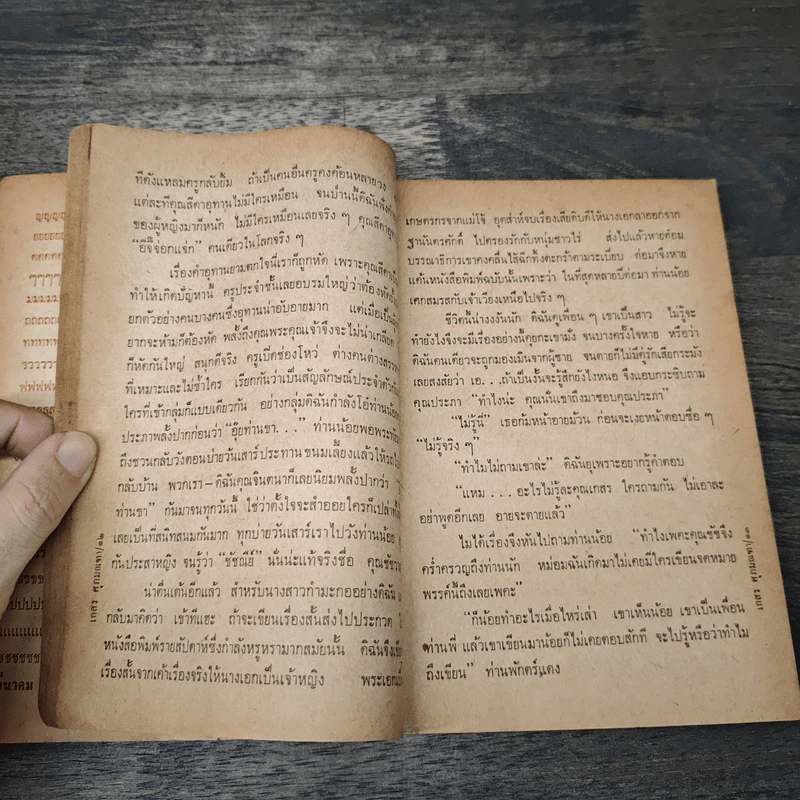 ที่ดังแหลมครูกลับยิ้ม ถ้าเป็นคนอื่นครูคงค้อนหลายวง
แต่ละทีคุณสีดาอุทานไม่มีใครเหมือน จนบ่านนี้ดิฉันฟัง
ของผู้หญิงมาก็หนัก ไม่มีใครเหมือนเลยจริง ๆ คุณสีดา
“อีจี๊จ่อกแจ๊ก” คนเดียวในโลกจริง ๆ
เรื่องคำอุทานยามตกใจนี่เราก็ถูกหัด เพราะคุณสีดา
ทำให้เกิดปัญหานี้ ครูประจำชั้นเลยอบรมใหญ่ว่าต้องหัด
ยกตัวอย่างคนบางคนซึ่งอุทานน่าอับอายมาก แต่เมื่อเป็น
ยากจะห้ามก็ต้องหัด พลั้งถึงคุณพระคุณเจ้าจึงจะไม่น่าเกลียด
ก็หัดกันใหญ่ สนุกดีจริง ครูเบ็ดช่องโหว่ ต่างคนต่างสรร
ที่เหมาะและไม่ซ้ำใคร เรียกกันว่าเป็นสัญลักษณ์ประจำตัว
ใครที่เข้ากลุ่มก็แบบเดียวกัน อย่างกลุ่มดิฉันกำลังโอ๋ท่านน้อย
ประภาพลั้งปากก่อนว่า “อุ๊ยท่านขา. . .” ท่านน้อยพอพระทัย
ถึงชวนกลับวังตอนบ่ายวันเสาร์ ประทานขนมเลี้ยงแล้วให้รถ
กลับบ้าน พวกเรา—ดิฉันคุณจินตนาก็เลยนิยมพลั้งปากว่า
ท่านขา” กันมาจนทุกวันนี้ ใช่ว่าตั้งใจจะสำออยใครก็เปล่า
เลยเป็นที่สนิทสนมกันมาก ทุกบ่ายวันเสาร์เราไปวังท่านน้อย
กันประสาหญิง จนรู้ว่า “ชัชณีย์” นั่นน่ะแท้จริงชื่อ คุณชัช
น่าตื่นเต้นอีกแล้ว สำหรับนางสาวกำมะกออย่างดิฉัน
กลับมาคิดว่า เข้าทีแฮะ ถ้าจะเขียนเรื่องสั้นส่งไปประกวด
หนังสือพิมพ์รายสัปดาห์ซึ่งกำลังหรูหรามากสมัยนั้น ดิฉันจึง
เรื่องสั้นจากเค้าเรื่องจริงให้นางเอกเป็นเจ้าหญิง พระเอก
เกสร ศุภมณฑา/๑๒
เกษตรกรจากแม่โจ้ อุตส่าห์จบเรื่องเสียดิบดีให้นางเอกลาออกจาก
ฐานันดรศักดิ์ ไปครองรักกับหนุ่มชาวไร่ ส่งไปแล้วหายต๋อม
บรรณาธิการเขาคงคลื่นไส้ฉีกทิ้งตะกร้าตามระเบียบ ต่อมาจึงหาย
แค้นหนังสือพิมพ์ฉบับนั้นเพราะว่า ในที่สุดหลายปีต่อมา ท่านน้อย
เศกสมรสกับเจ้าเวียงเหนือไปจริง ๆ
ชีวิตนี้น่างงงันนัก ดิฉันดูเพื่อน ๆ เขาเป็นสาว ไม่รู้จะ
ทำยังไงจึงจะมีเรื่องอย่างนี้คุยกะเขามั่ง จนบางครั้งใจหาย หรือว่า
ดิฉันคนเดียวจะถูกมองเมินจากผู้ชาย จนตายก็ไม่มีคู่รักเสียกระมัง
เลยสงสัยว่า เอ. . .ถ้าเป็นงั้นจะรู้สึกยังไงหนอ จึงแอบกระซิบถาม
คุณประภา “ทำไงน่ะ คุณนั่นเขาถึงมาชอบคุณประภา”
“ไม่รู้นี่” เธอก้มหน้าอายม้วน ก่อนจะเงยหน้าตอบซื่อ ๆ
“ไม่รู้จริง ๆ”
“ทำไมไม่ถามเขาล่ะ” ดิฉันยุเพราะอยากรู้คำตอบ
“แหม . . . อะไรไม่รู้ละคุณเกสร ใครถามกัน ไม่เอาละ
อย่าพูดอีกเลย อายจะตายแล้ว”
ไม่ได้เรื่องจึงหันไปถามท่านน้อย “ทำไงเพคะคุณชัชจึง
คร่ำครวญถึงท่านนัก หม่อมฉันเกิดมาไม่เคยมีใครเขียนจดหมาย
พรรค์นี้ถึงเลยเพคะ”
“ก็น้อยทำอะไรเมื่อไหร่เล่า เขาเห็นน้อย เขาเป็นเพื่อน
ท่านพี่ แล้วเขาเขียนมาน้อยก็ไม่เคยตอบสักที จะไปรู้หรือว่าทำไม
ถึงเขียน” ท่านพักตร์แดง